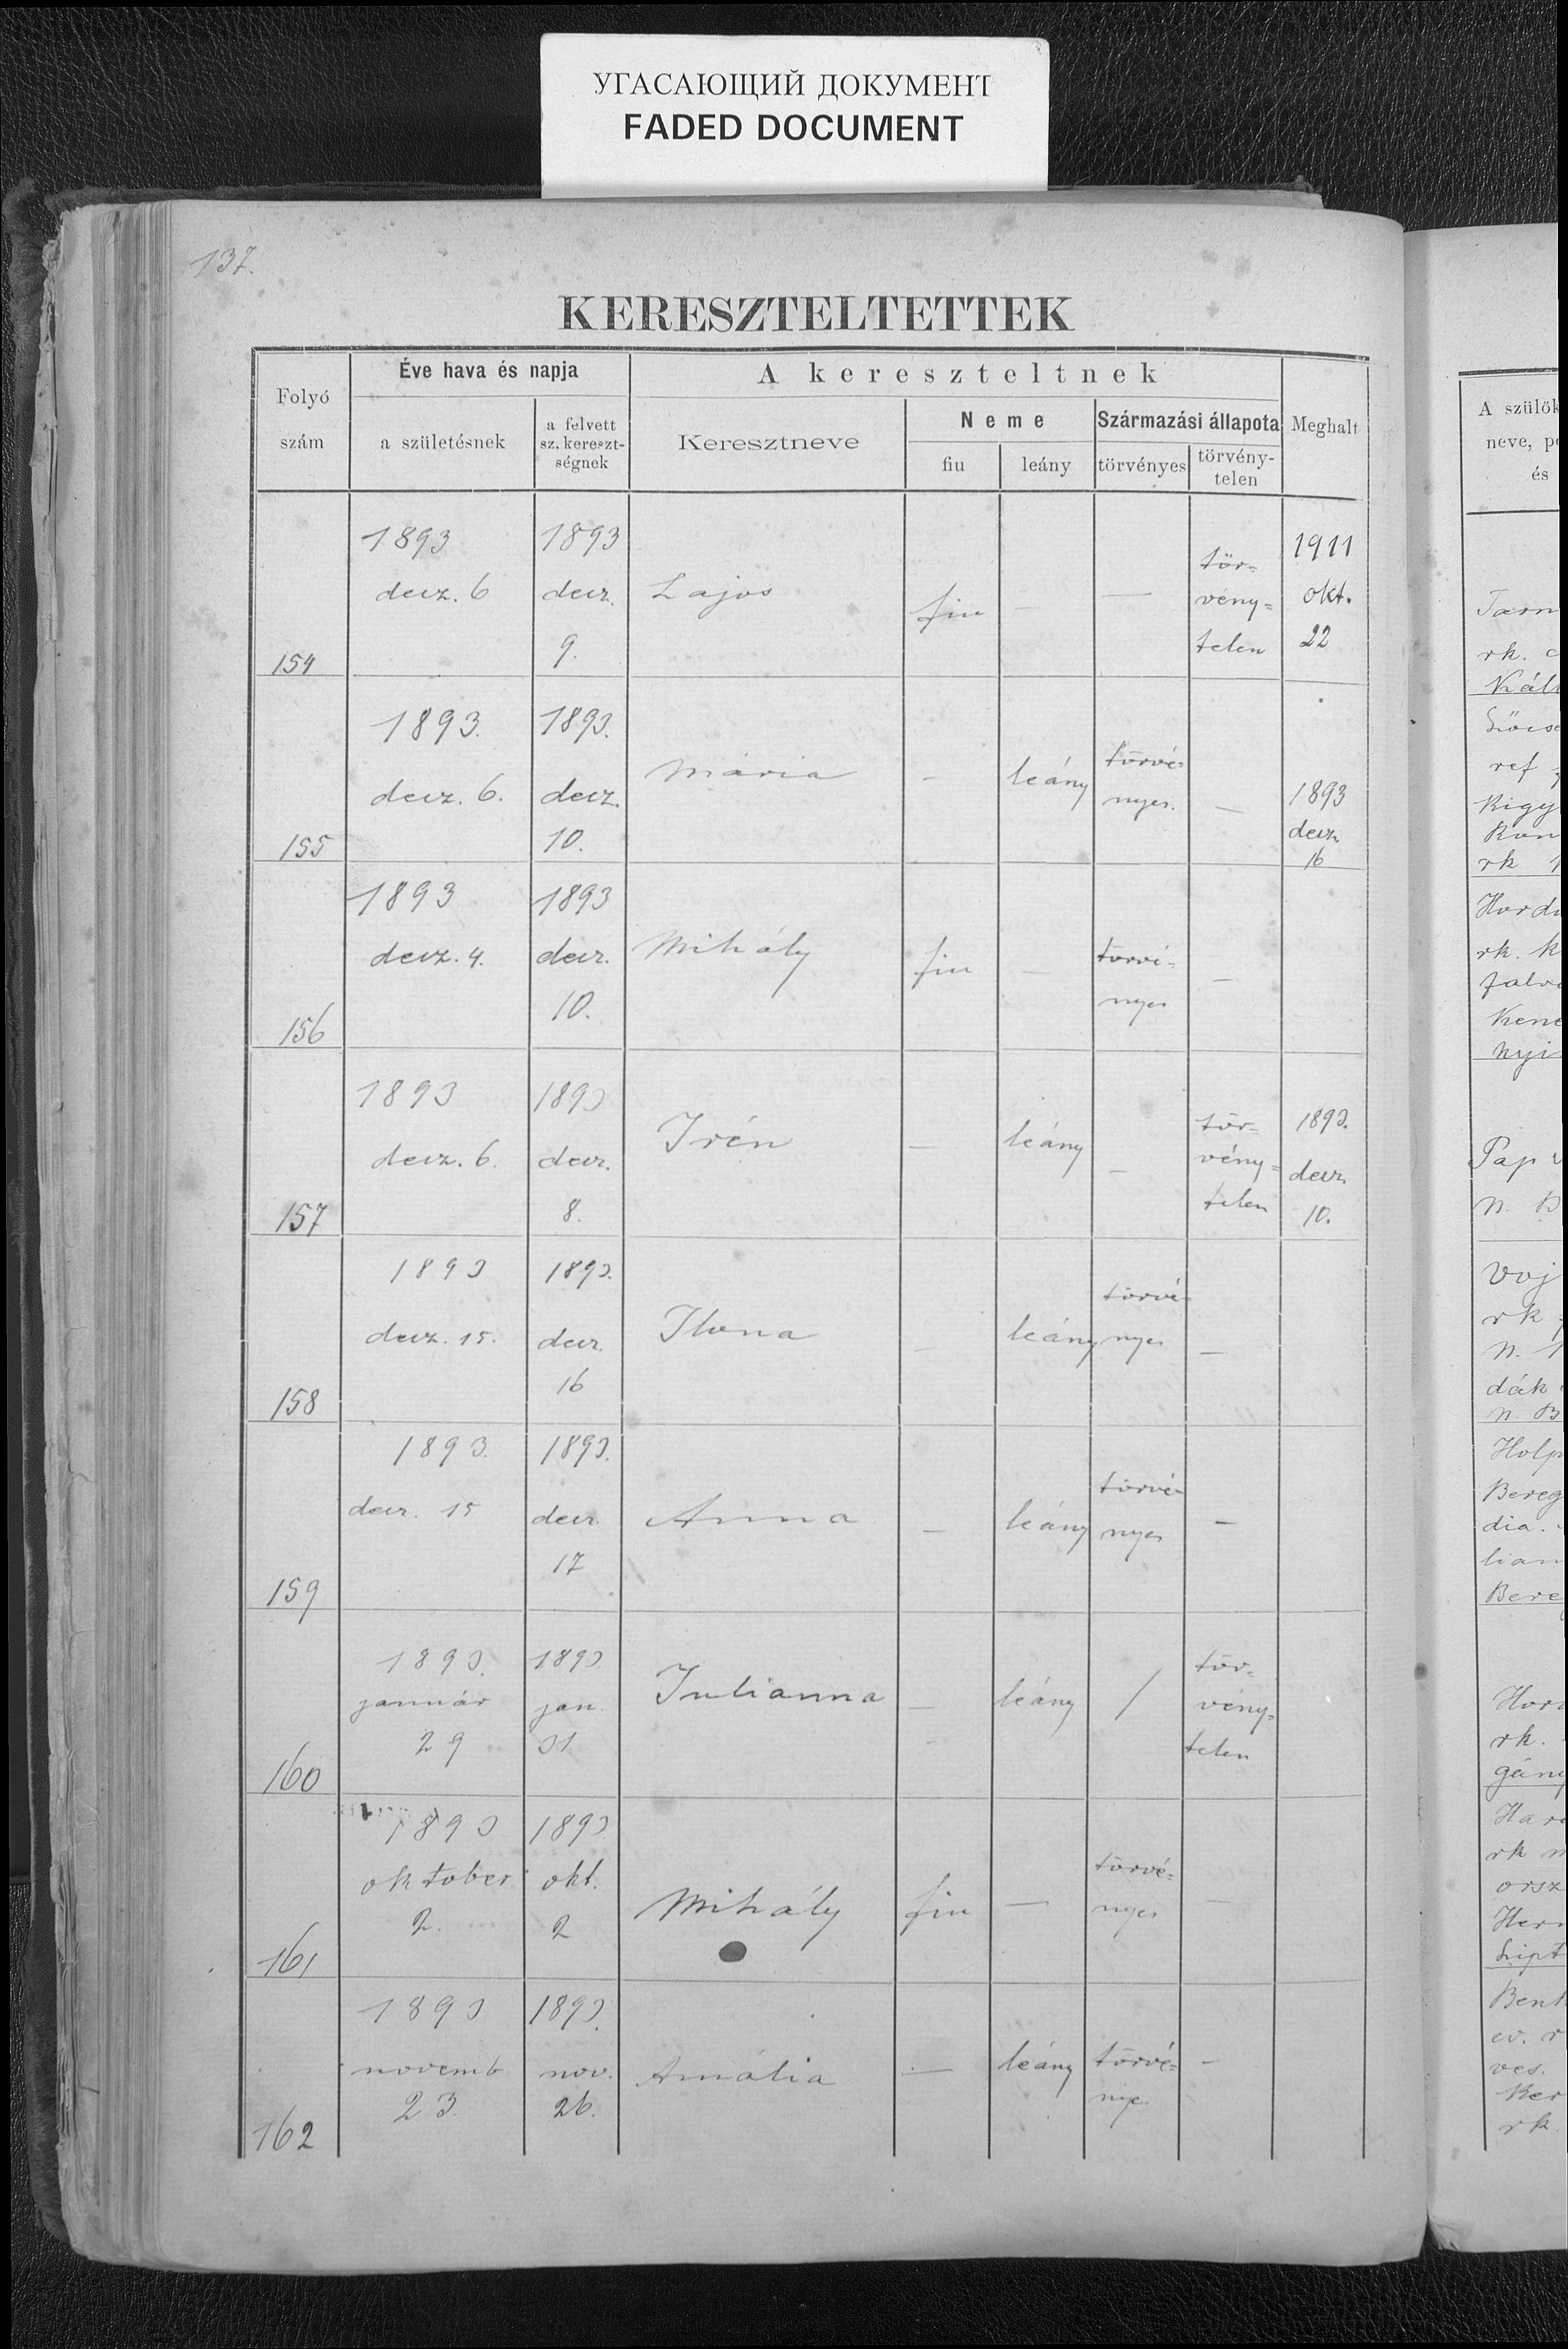 УГАСАЮЩИЙ ДОКУМЕНТ
FADED DOCUMENT
137.
KERESZTELTETTEK
Folyó szám
Éve hava és napja
a születésnek
a felvett sz. kereszt-ségnek
A kereszteltnek
Keresztneve
Neme
fiu
leány
Származási állapota
törvényes
törvény-telen
Meghalt
154
1893 decz. 6
1893 decz. 9.
Lajos
fiu
—
—
tör= vény= telen
1911 okt. 22
155
1893. decz. 6.
1893. decz. 10.
Mária
-
leány
törvé= nyes.
—
1893 decz. 16
156
1893 decz. 4.
1893 decz. 10.
Mihály
fiu
—
törvé= nyes
—
157
1893 decz. 6.
1893 decz. 8.
Irén
—
leány
—
tör= vény= telen
1893. decz. 10.
158
1893 decz. 15.
1893. decz. 16
Ilona
—
leány
törvé= nyes
—
159
1893. decz. 15
1893. decz. 17
Anna
—
leány
törvé= nyes
—
160
1893. január 29
1893 jan. 31
Julianna
—
leány
/
tör= vény= telen
161
1893 oktober 2.
1893 okt. 2
Mihály
fiu
—
törvé= nyes
—
162
1893 novemb 23.
1893. nov. 26.
Amália
—
leány
törvé= nye
—
A szülők
neve, p
és
rk.
ref
rk
rk. k
Pap
N. B
Voj
rk
dák
N. B
Bereg
dia.
rk.
rk
orsz
ev. r
ves.
Ker
rk.